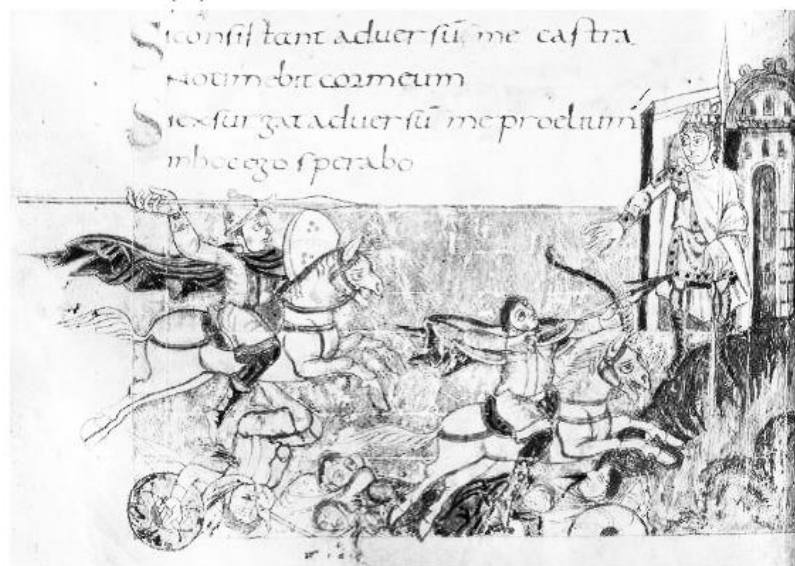 Si consistant aduersū me castra
Non timebit cor meum
Si exsurgat aduersū me proelium
in hoc ego sperabo